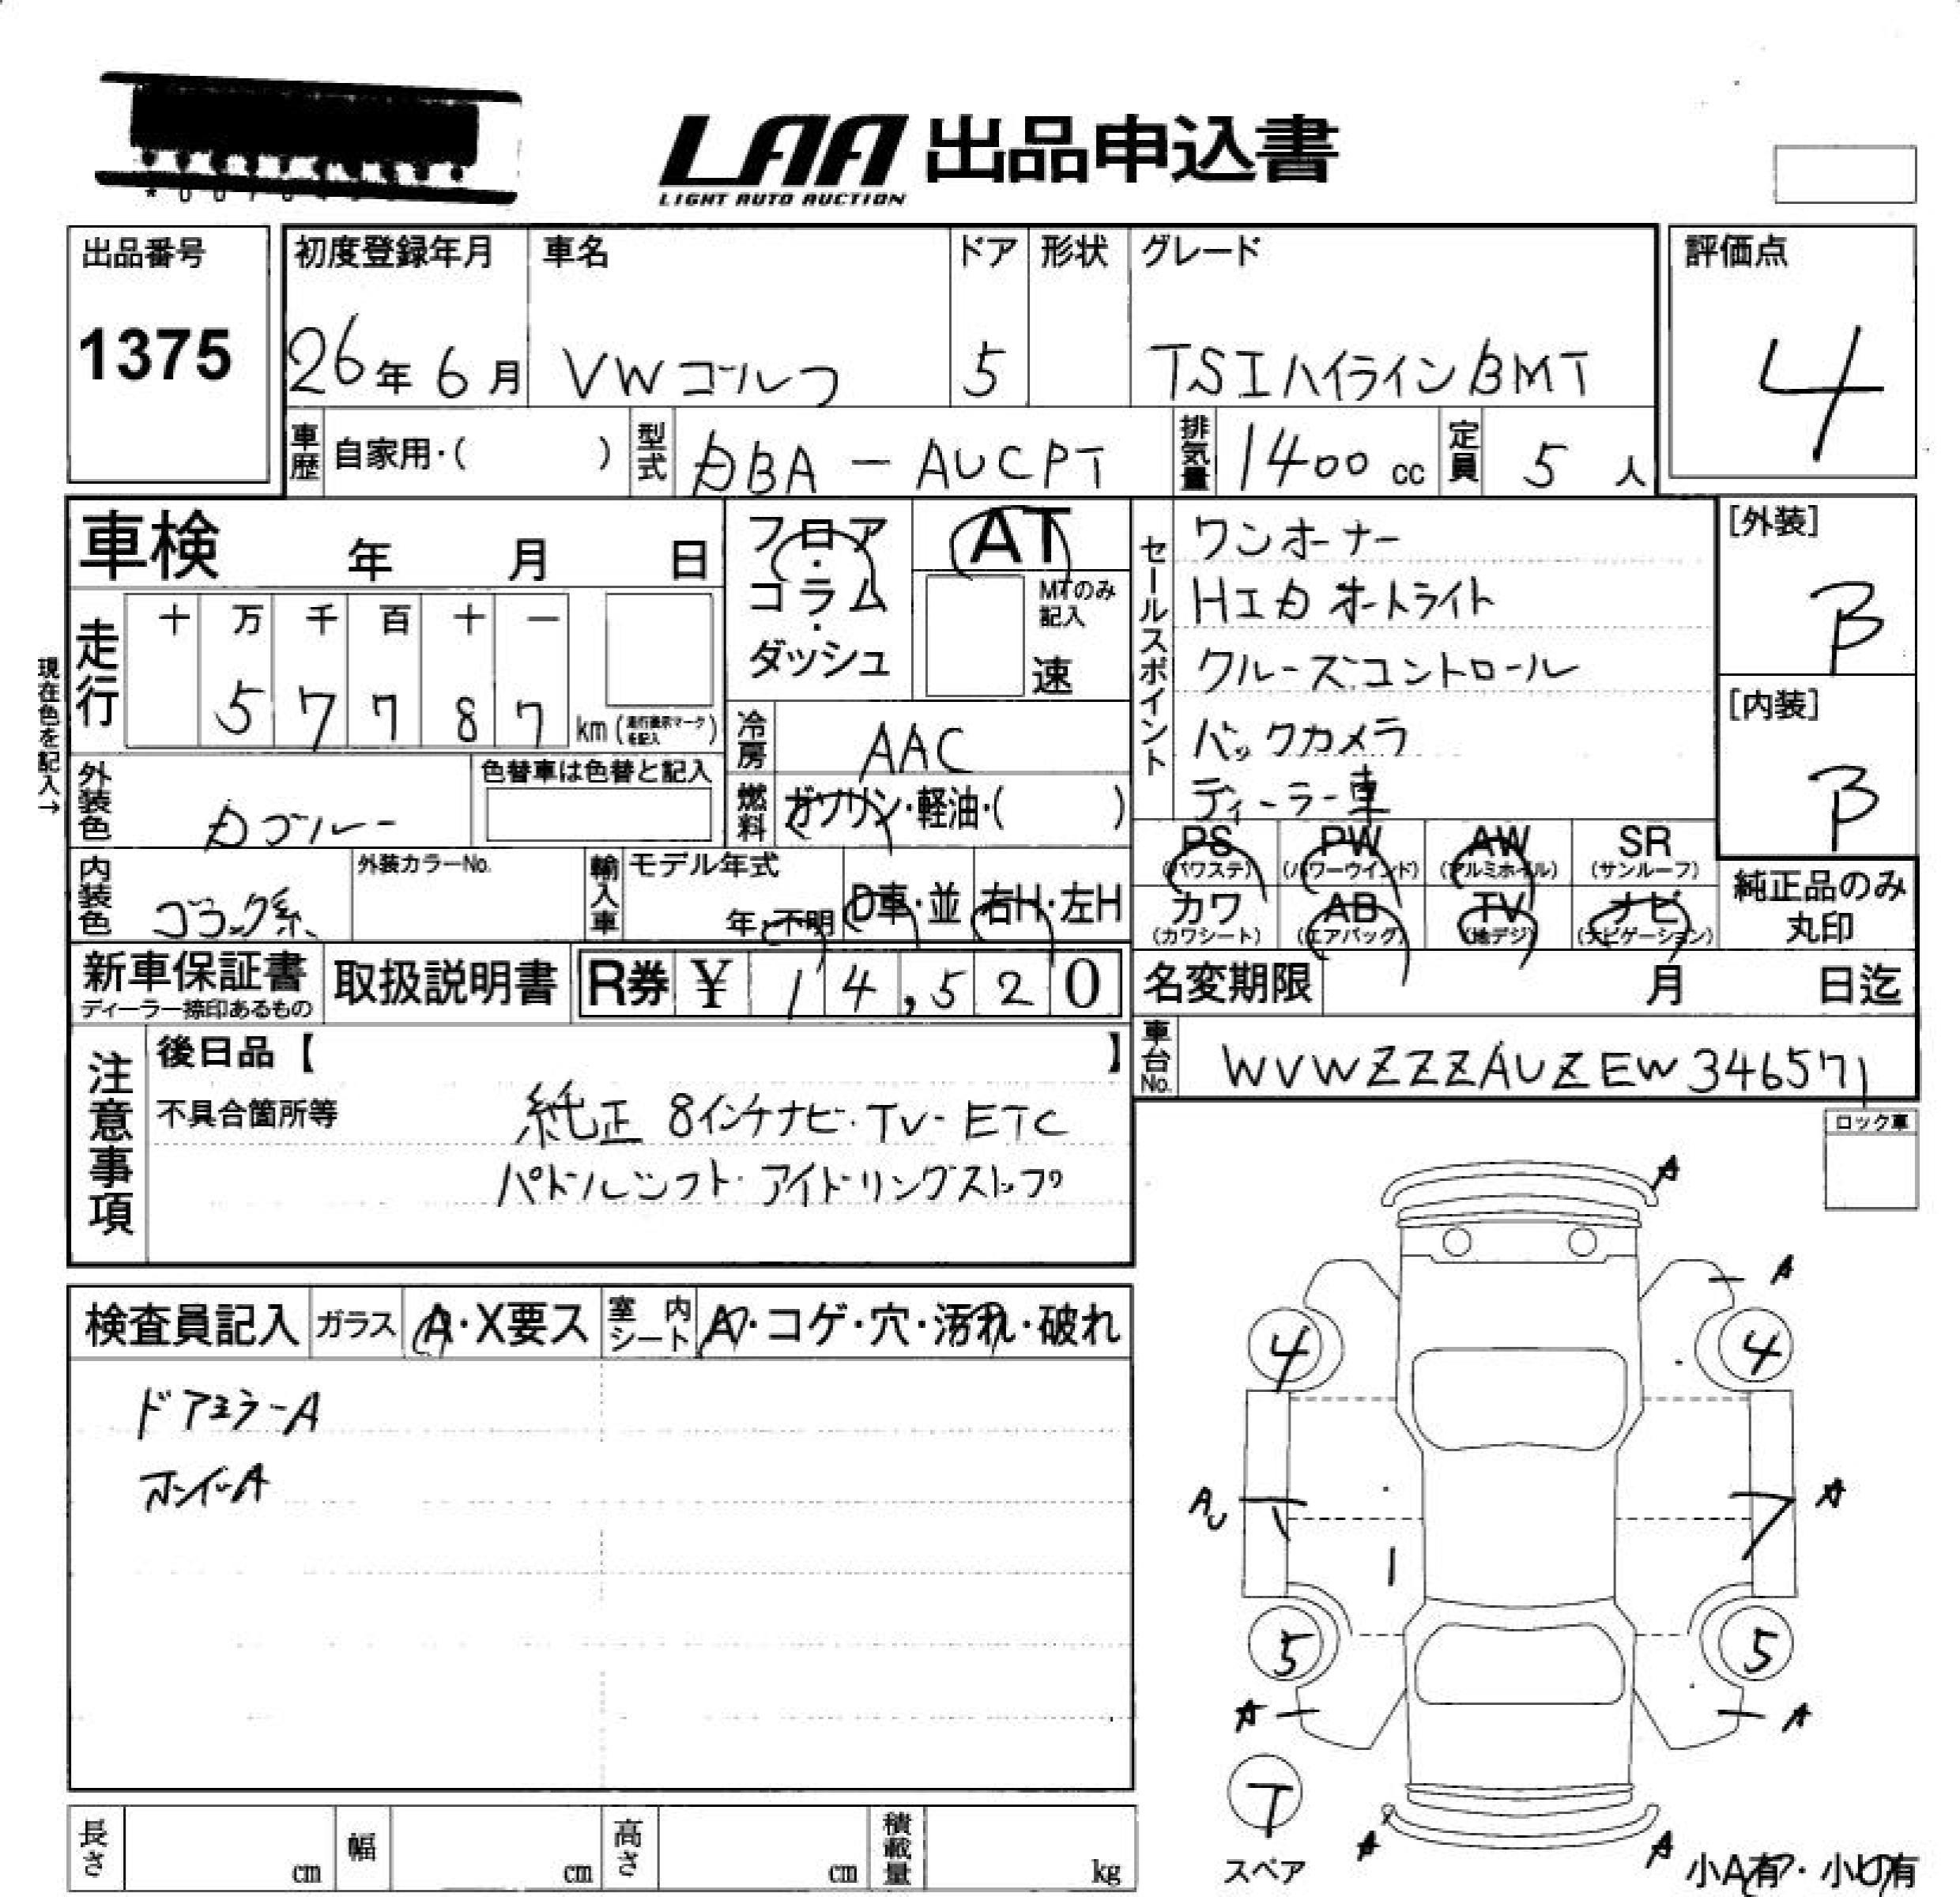 LAA 出品申込書
LIGHT AUTO AUCTION
出品番号
1375
初度登録年月 車名 ドア 形状 グレード
26年 6月 VWゴルフ 5 TSIハイラインBMT
評価点
4
車歴 自家用・( ) 型式 DBA - AUCPT 排気量 1400cc 定員 5人
車検 年 月 日
フロア・コラム・ダッシュ
AT
MTのみ記入
速
セールスポイント
ワンオーナー
HIDオートライト
クルーズコントロール
バックカメラ
ディーラー車
[外装]
B
[内装]
B
現在色を記入→
走行 十 万 千 百 十 一
5 7 7 8 7 km (走行表示マークを記入)
冷房 AAC
外装色 Dブルー
色替車は色替と記入
燃料 ガソリン・軽油・( )
PS (パワステ) PW (パワーウインド) AW (アルミホイル) SR (サンルーフ)
カワ (カワシート) AB (エアバッグ) TV (地デジ) ナビ (ナビゲーション)
純正品のみ丸印
内装色 ブラック系
外装カラーNo.
輸入車 モデル年式
年・不明 D車・並 右H・左H
新車保証書
ディーラー捺印あるもの
取扱説明書
R券 ¥ 14,520
名変期限 月 日迄
車台No. WVWZZZAUZEW346571
注意事項
後日品【 】
不具合箇所等
純正 8インチナビ・TV・ETC
パドルシフト・アイドリングストップ
ロック車
検査員記入 ガラス A・X要ス 室内シート A・コゲ・穴・汚れ・破れ
ドアミラーA
ホイールA
A
A
4 4
AU A
5 5
A A
T
スペア
A A
小A有・小U有
長さ cm 幅 cm 高さ cm 積載量 kg